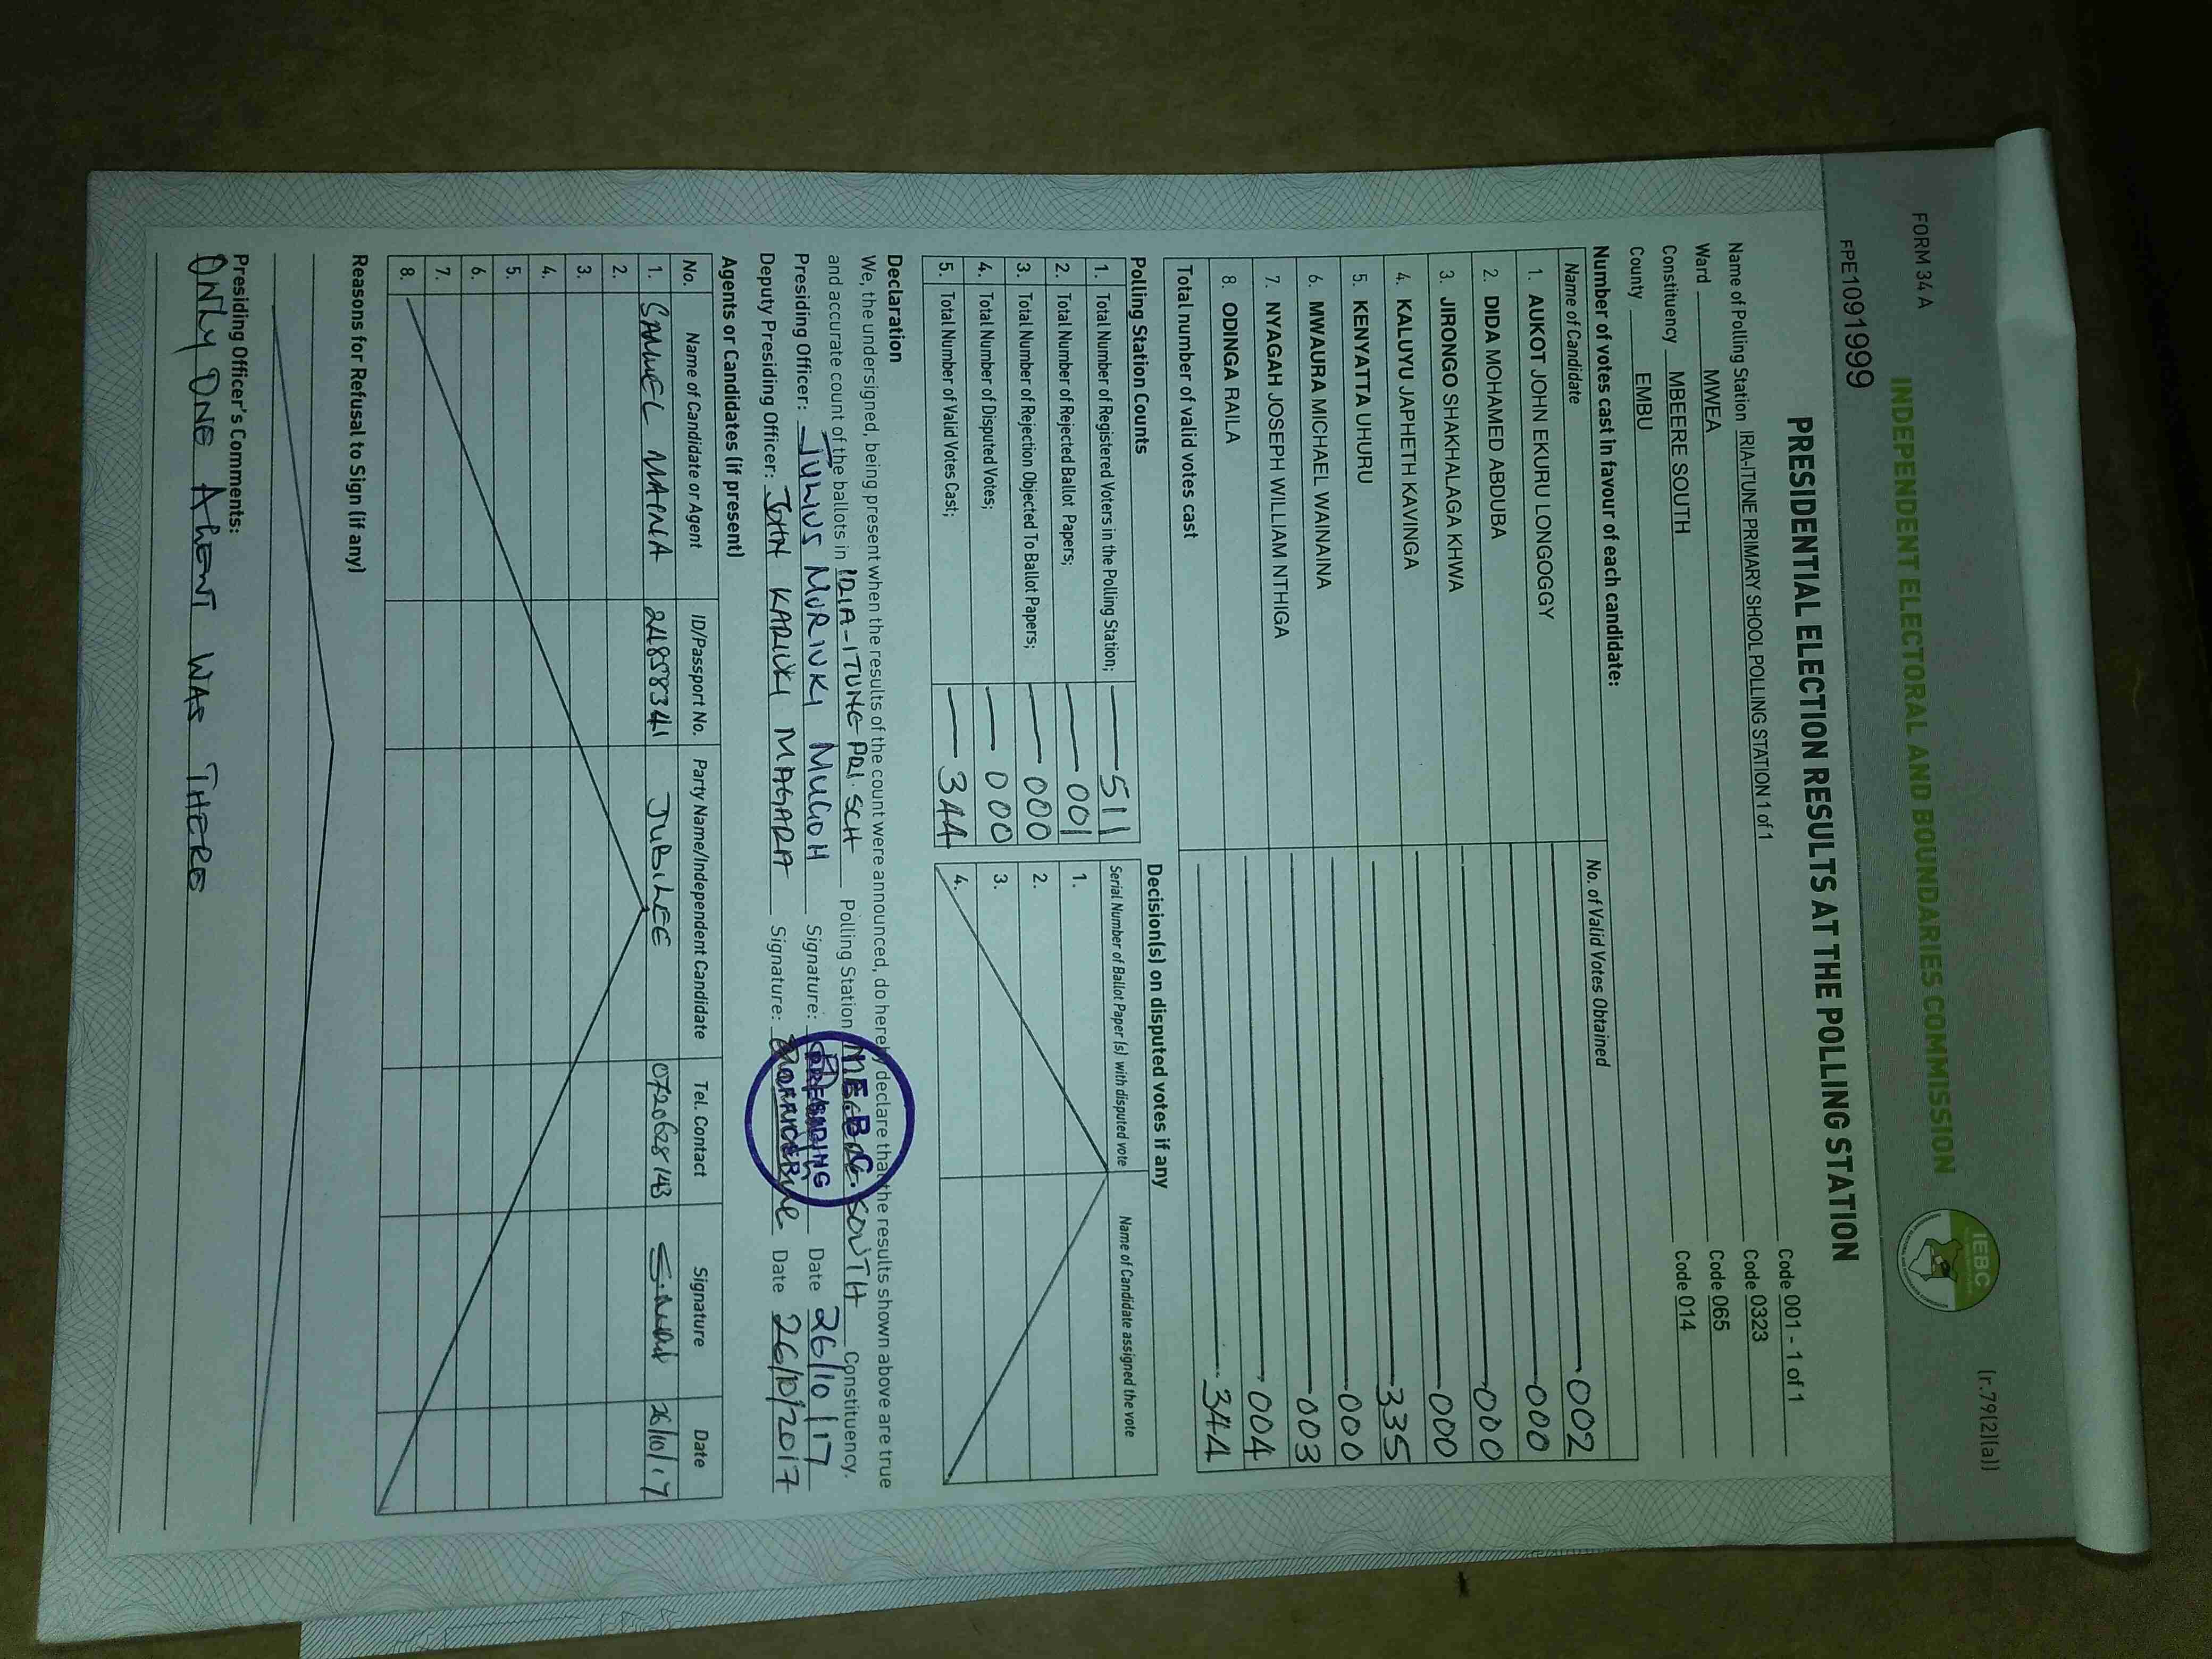 FORM 34 A
(r.79(2)(a))
INDEPENDENT ELECTORAL AND BOUNDARIES COMMISSION
IEBC
FPE1091999
PRESIDENTIAL ELECTION RESULTS AT THE POLLING STATION
Name of Polling Station IRIA-ITUNE PRIMARY SHOOL POLLING STATION 1 of 1 Code 001 - 1 of 1
Ward MWEA Code 0323
Constituency MBEERE SOUTH Code 065
County EMBU Code 014
Number of votes cast in favour of each candidate:
Name of Candidate No. of Valid Votes Obtained
1. AUKOT JOHN EKURU LONGOGGY 002
2. DIDA MOHAMED ABDUBA 000
3. JIRONGO SHAKHALAGA KHWA 000
4. KALUYU JAPHETH KAVINGA 000
5. KENYATTA UHURU 335
6. MWAURA MICHAEL WAINAINA 000
7. NYAGAH JOSEPH WILLIAM NTHIGA 003
8. ODINGA RAILA 004
Total number of valid votes cast 344
Polling Station Counts
1. Total Number of Registered Voters in the Polling Station; 511
2. Total Number of Rejected Ballot Papers; 001
3. Total Number of Rejection Objected To Ballot Papers; 000
4. Total Number of Disputed Votes; 000
5. Total Number of Valid Votes Cast; 344
Decision(s) on disputed votes if any
Serial Number of Ballot Paper (s) with disputed vote Name of Candidate assigned the vote
1.
2.
3.
4.
Declaration
We, the undersigned, being present when the results of the count were announced, do hereby declare that the results shown above are true
and accurate count of the ballots in IRIA-ITUNE PRI. SCH Polling Station SOUTH Constituency.
Presiding Officer: JULIUS MURIUKI MUGOH Signature: Date 26/10/17
Deputy Presiding Officer: JOHN KARIUKI MAGARA Signature: Date 26/10/2017
PRESIDING
Agents or Candidates (if present)
No. Name of Candidate or Agent ID/Passport No. Party Name/Independent Candidate Tel. Contact Signature Date
1. SAMUEL MAINA 24858341 JUBILEE 0720628143 26/10/17
2.
3.
4.
5.
6.
7.
8.
Reasons for Refusal to Sign (if any)
Presiding Officer's Comments:
ONLY ONE AGENT WAS THERE